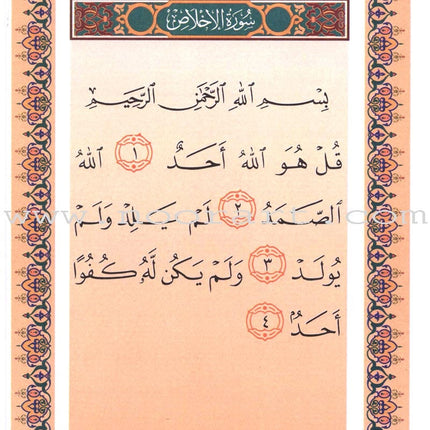 سُورَةُ الإِخْلَاصِ
بِسْمِ اللهِ الرَّحْمَٰنِ الرَّحِيمِ
قُلْ هُوَ اللهُ أَحَدٌ ١ اللهُ
الصَّمَدُ ٢ لَمْ يَلِدْ وَلَمْ
يُولَدْ ٣ وَلَمْ يَكُن لَّهُ كُفُوًا
أَحَدٌ ٤